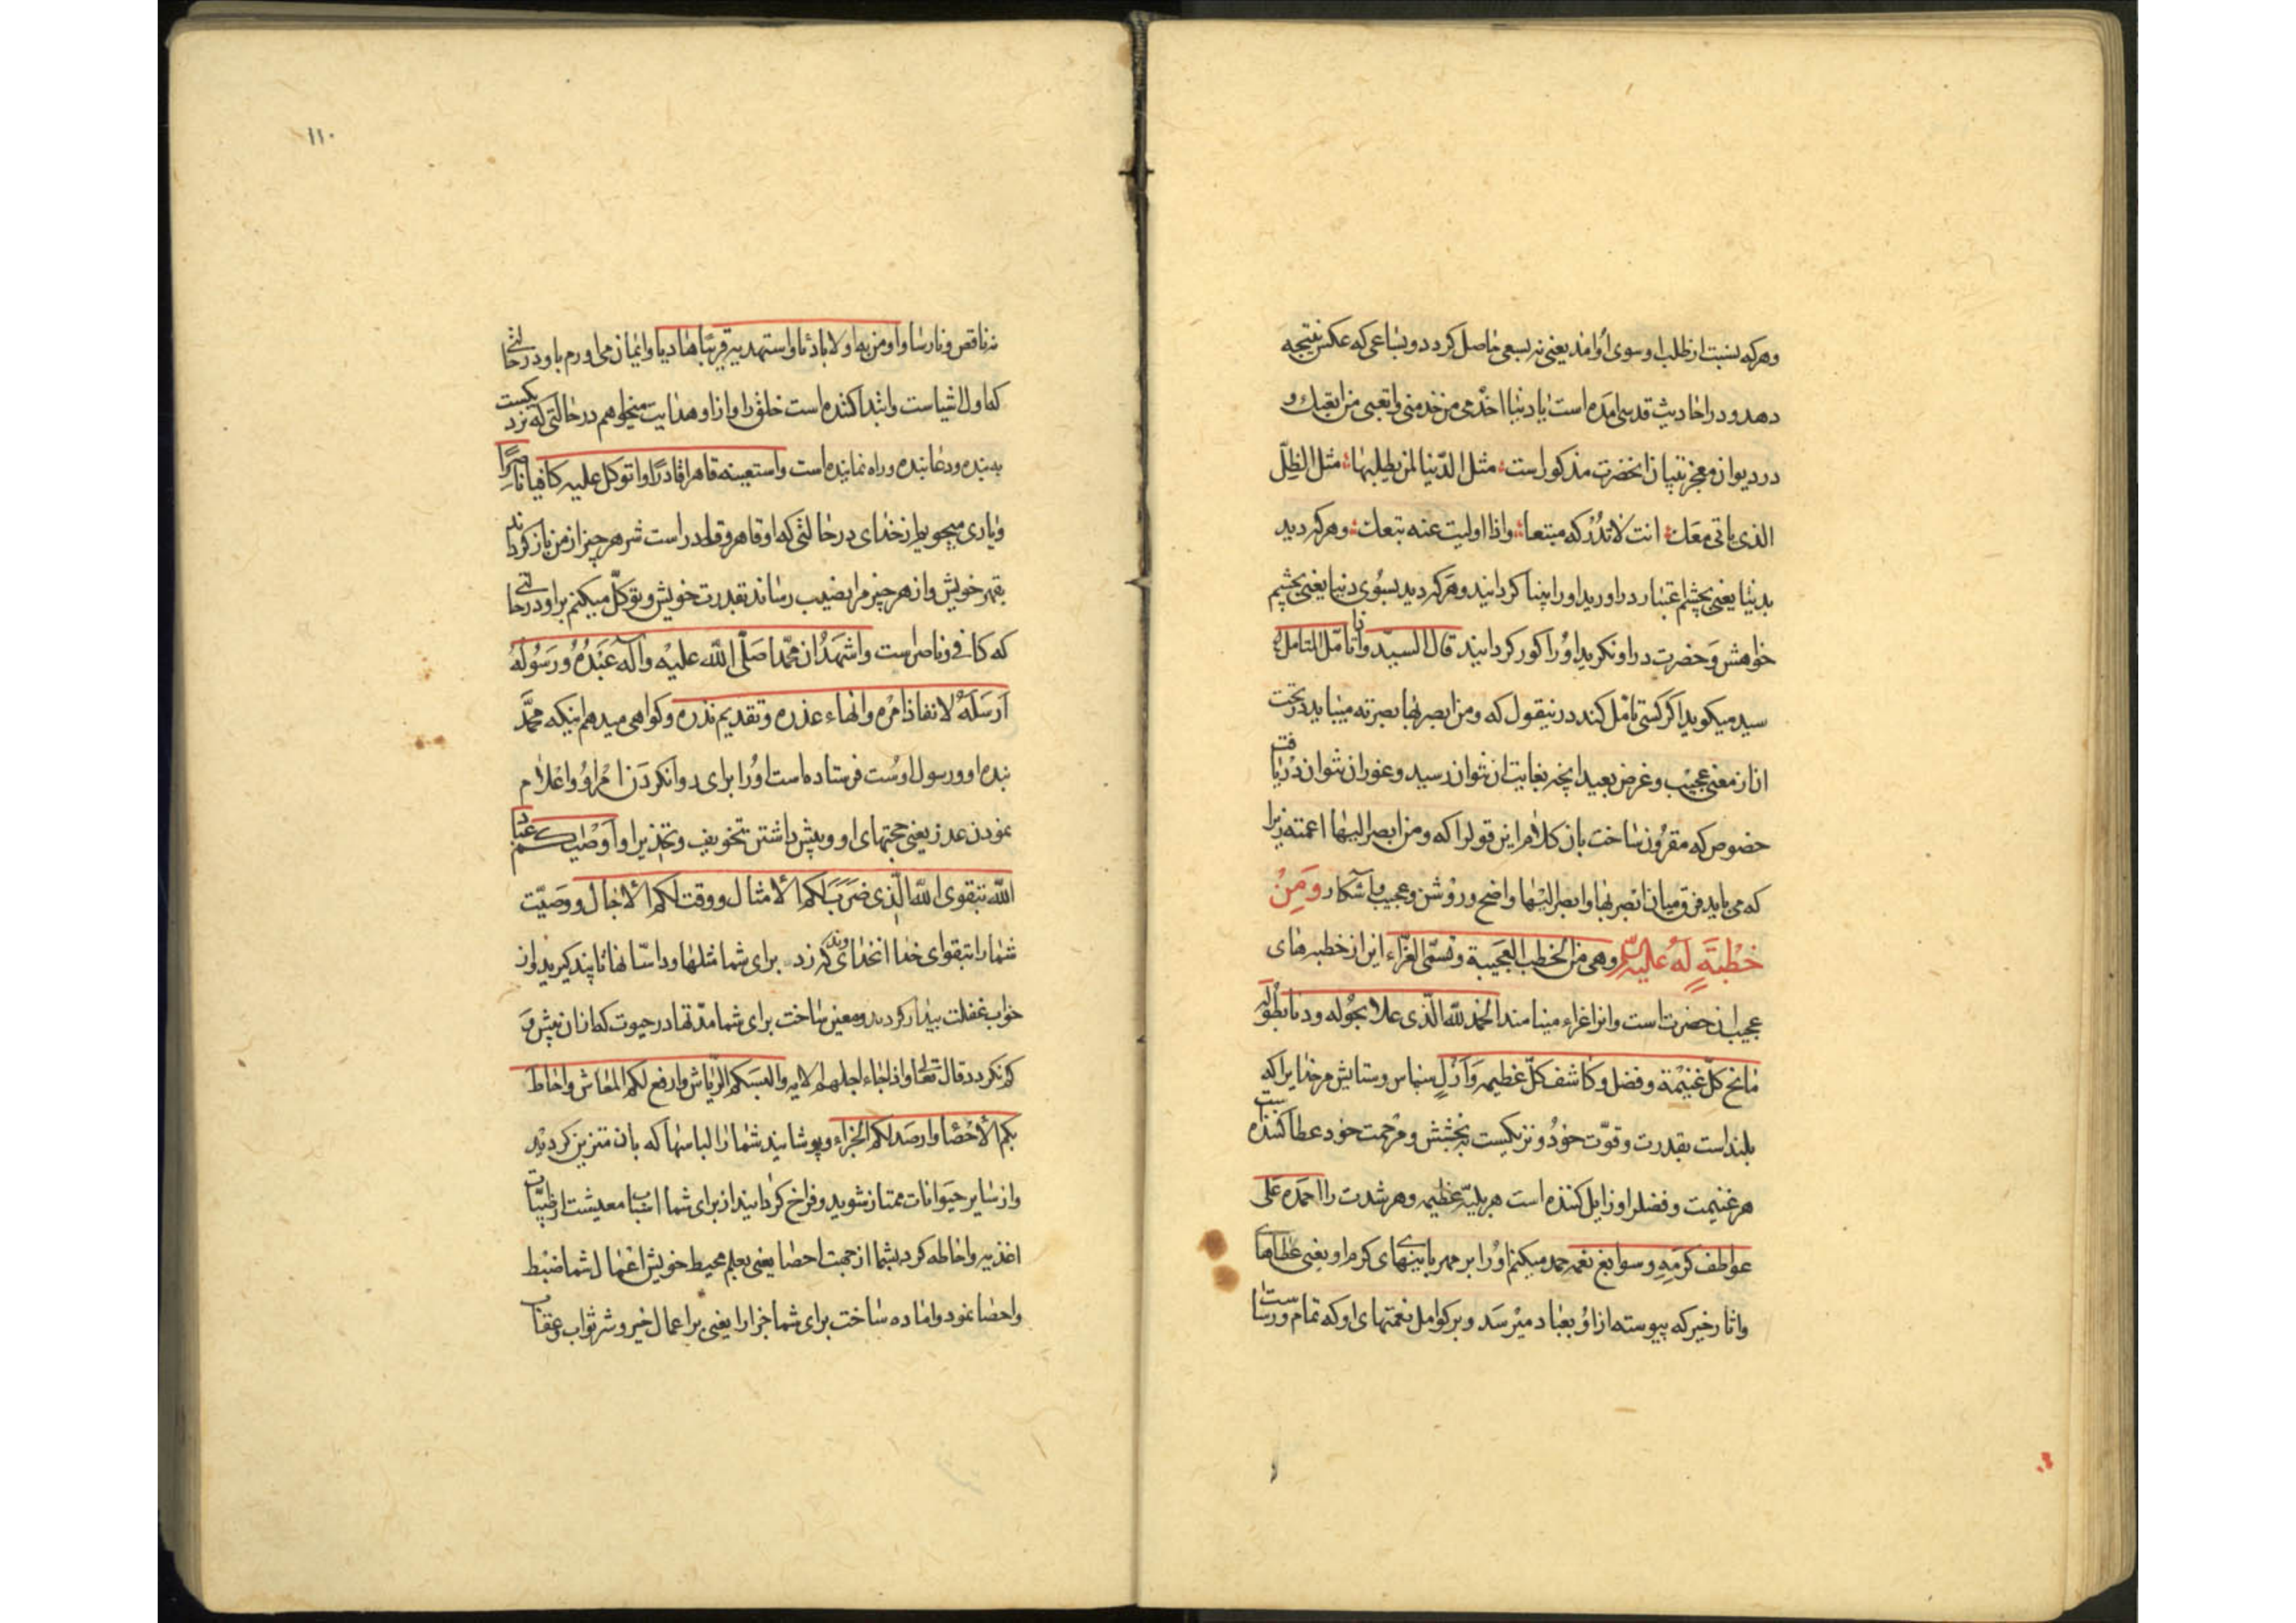 وهرکه بنشست از طلب او سوی او امد یعنی نه بسعی حاصل کردد و بساعی که عکس نتیجه
دهد و در احادیث قدسی امده است یا دنیا اخذمی من خدمنی واتعبی من اتعبک و
در دیوان معجز بیان انحضرت مذکور است مثل الدنیا لمن یطلبها مثل الظلّ
الذی یاتی معک انت لا تدرکه متبعا واذا اولیت عنه تبعک وهرکه دید
بدنیا یعنی بچشم اعتبار در او دید او را بینا کردانید و هرکه دید بسوی دنیا یعنی بچشم
خواهش و حضرت در او نکرید او را کور کردانید قال السید واذا تامّل المتامل
سید میکوید اکر کسی تامّل کند در نیقول که ومن ابصر بها بصرته میباید در تحت
ان از معنی عجیب وغرض بعید انچه بغایت ان نتوان رسید وغور ان نتوان دریافت
خصوص که مقرون ساخت بان کلام این قول را که ومن ابصر الیها اعمته زیرا
که می یابد فرق میان ابصر بها وابصر الیها واضح و روشن وعجیب واشکار وَمِنْ
خُطْبَةٍ لَهُ علیه السلم وهی من الخطب العجیبة وتسمّی الغرّاء این از خطبه های
عجیب انحضرتست وانرا غراء مینامند الحمد لله الّذی علا بحوله ودنا بطوله
مانح کلّ غنیمة وفضل وکاشف کلّ عظیمه وَاَزْلٍ سپاس وستایش مر خدایرا که
بلند است بقدرت وقوّت خود و نزدیکست ببخشش و مرحمت خود عطا کننده است
هر غنیمت و فضلرا وزایل کننده است هر بلیه عظیمه وهر شدت را احمده علی
عواطف کرمه وسوابغ نعمه حمد میکنم او را بر مهربانیهای کرم او یعنی عطاهای
واثار خیر که پیوسته از او بعباد میرسد و بر کوامل نعمتهای او که تمام و رساست
۱۱۰
نه ناقص و نارسا واومن به اولا بادئا واستهدیه قریبًا هادیا وایمان می اورم باو در حالتی
که اول اشیاست وابتدا کننده است خلق را واز او هدایت میخواهم در حالتی که نزدیکست
به بنده ودعا بنده وراه نماینده است واستعینه قاهرا قادرًا واتوکل علیه کافیا ناصرًا
ویاری میجویم از خدای در حالتی که او قاهر و قادر است شر هر چیز از من باز کرداند
بقهر خویش واز هر چیز مرا نصیب رساند بقدرت خویش وتوکّل میکنم بر او در حالتی
که کافی و ناصر است واشهَدُ ان محمّدا صَلّی الله علیه وآله عَبْدُهُ وَرَسُولُهُ
اَرْسَلَهُ لانفاذ امره وانهاء عذره وتقدیم نذره وکواهی میدهم اینکه محمّد
بنده او ورسول اوست فرستاده است او را برای روا نکردن امر او واعلام
نمودن عذر یعنی حجتهای او وپیش داشتن تخویف وتحذیر او اوصیکم عباد
الله بتقوی الله الّذی ضَرَبَ لکم الأمثال ووقت لکم الأجال ووصیّت
شما را بتقوای خدا انخدای که زد برای شما مثلها وداستانها تا پند کیرید واز
خواب غفلت بیدار کردید ومعین ساخت برای شما مدّتها در حیوت که از ان پیش و
کم نکردد قال تعالی واذا جاء اجلهم الایه والبسکم الرّیاش وارفع لکم المعاش واحاط
بکم الأحْصَا وارصد لکم الجزاء وپوشانید شما را لباسها که بان متزین کردید
واز سایر حیوانات ممتاز شوید وفراخ کردانید از برای شما اسباب معیشت از طیّبات
اغذیه واحاطه کرد بشما از جهت احصا یعنی بعلم محیط خویش اعمال شما ضبط
واحصا نمود واماده ساخت برای شما جزا را یعنی بر اعمال خیر وشر ثواب وعقاب